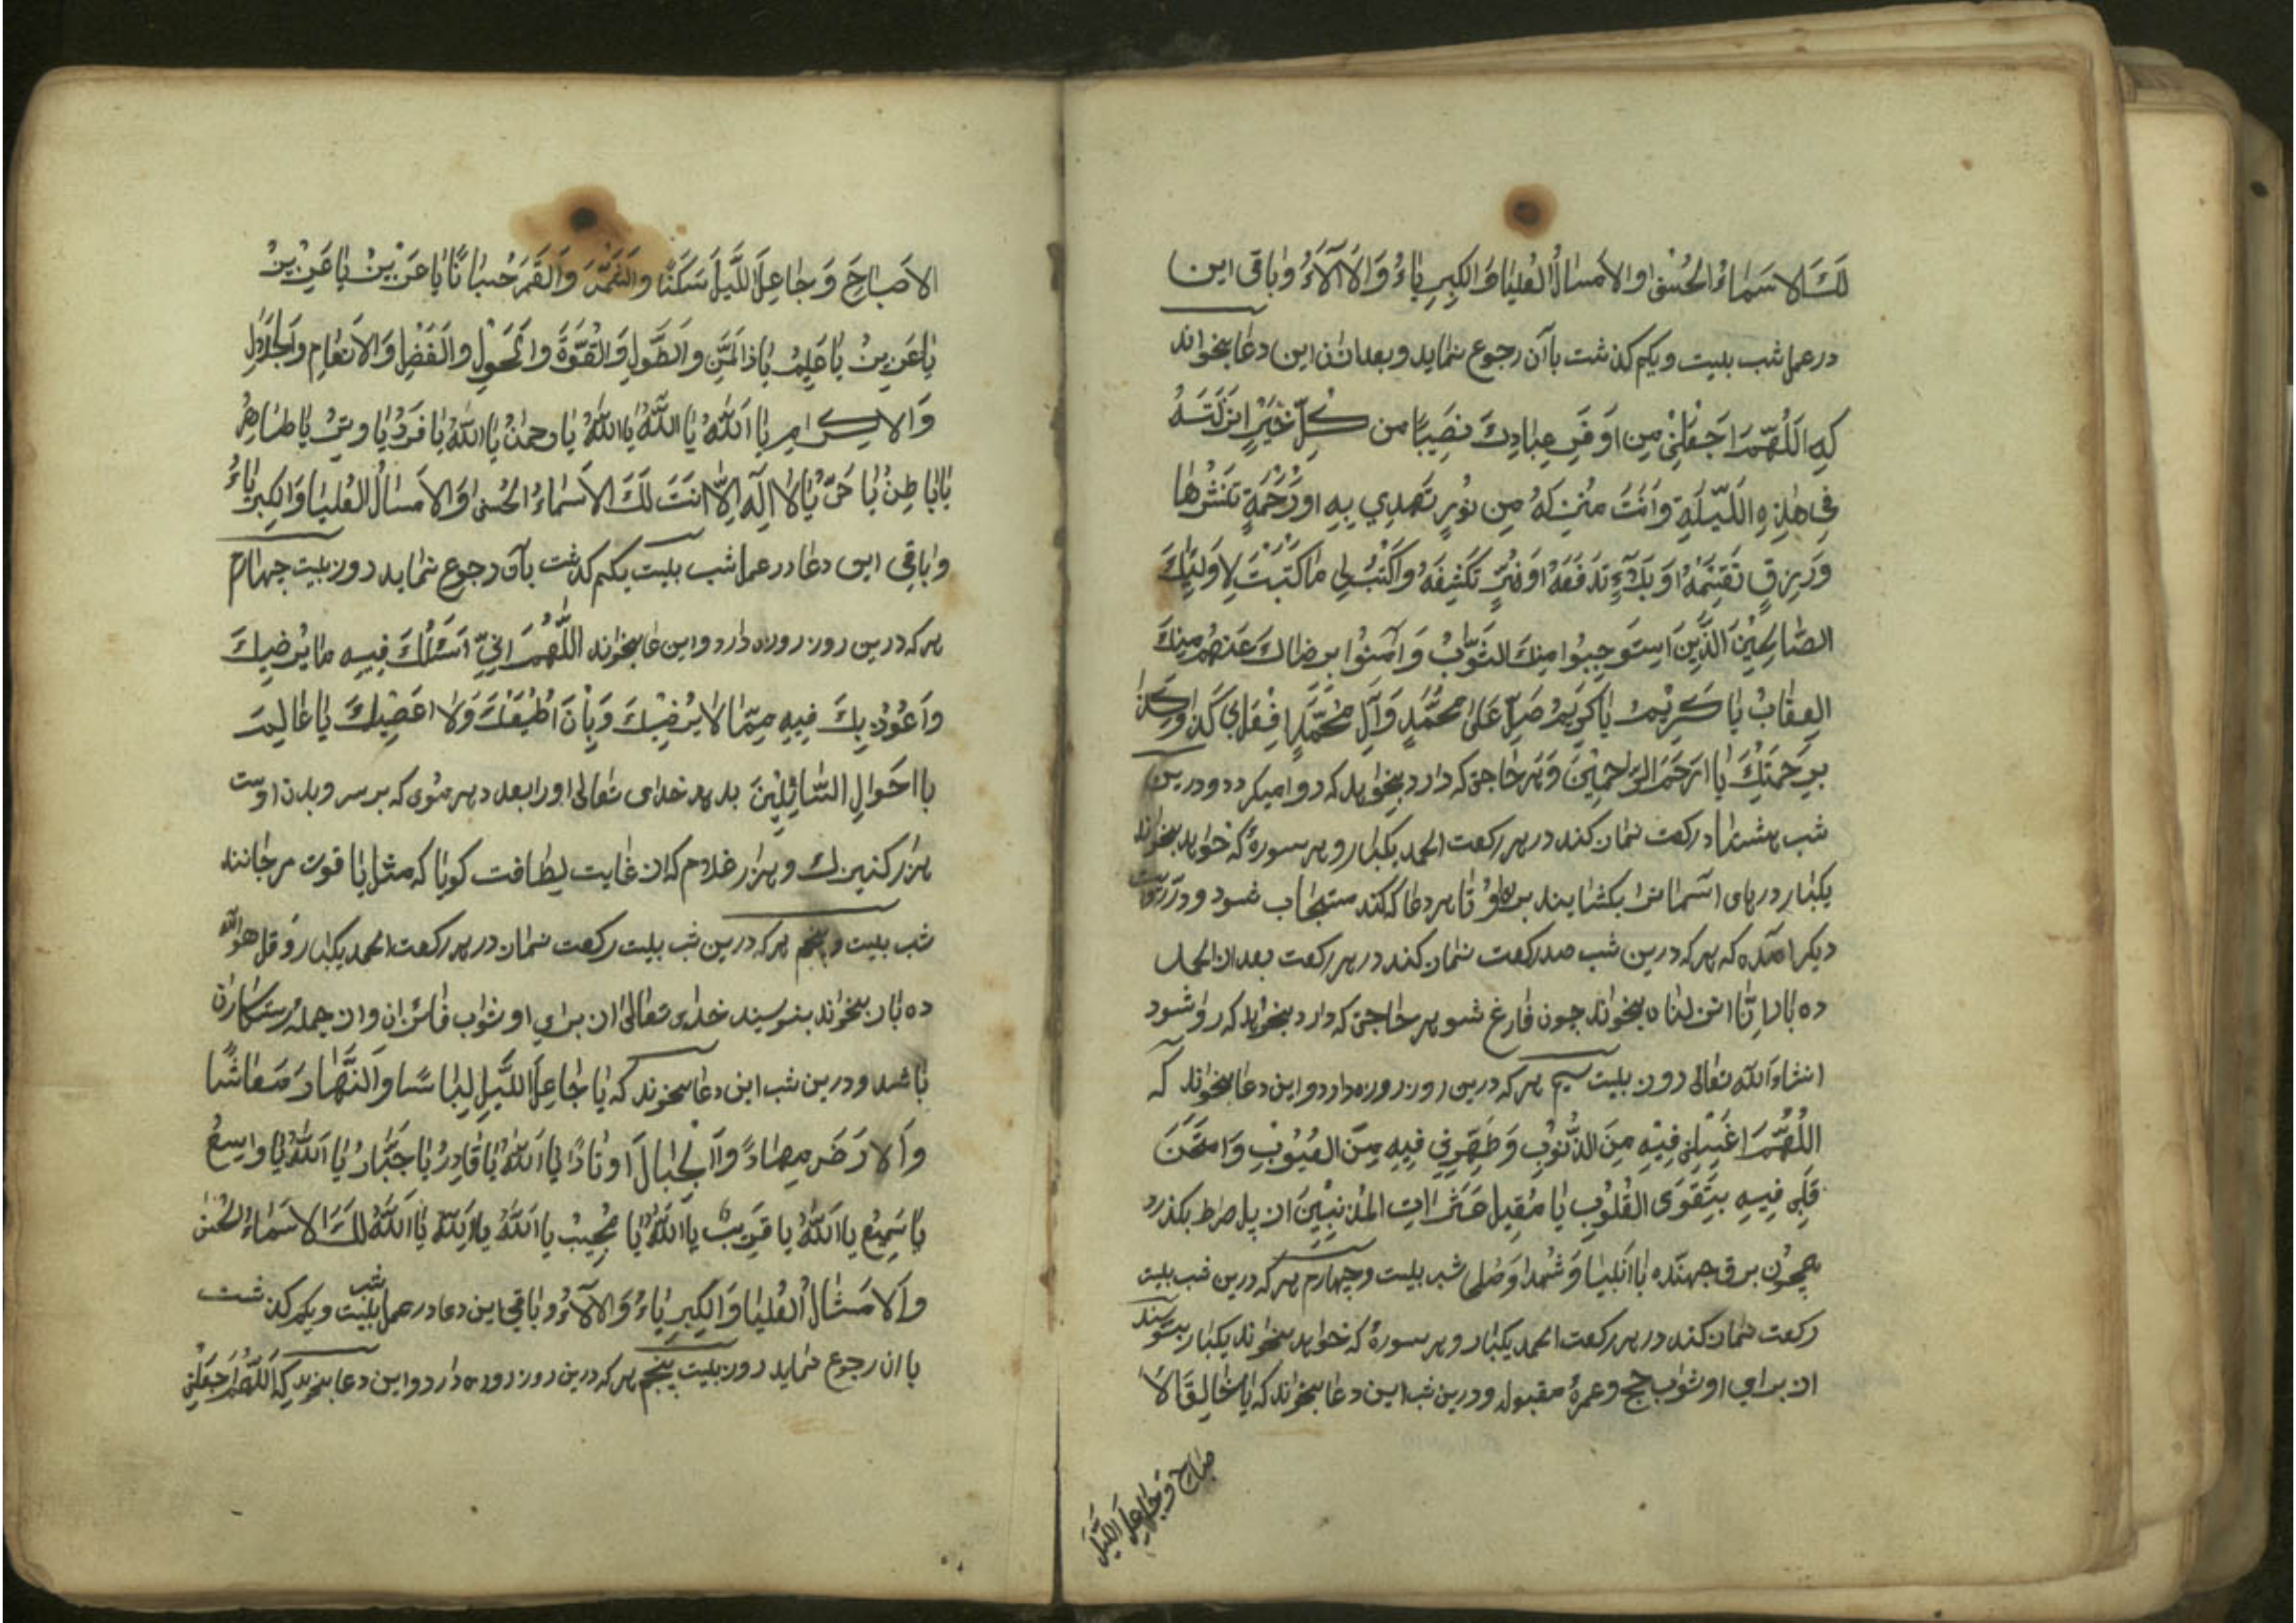 لَكَ الاَسَمٰاءُ الحُسنىٰ والاَمسٰالُ العُليٰا وَالكِبِرِيٰاءُ وَالاَآلاَءُ وبٰاقى اين
در عمل شب بيست ويكم كذشت بآن رجوع نمٰايد وبعد ازان اين دعٰا بخوٰاند
كه اَللّهُمَّ اجَعَلنِى مِن اَوفَرِ عِبٰادِكَ نصَيبًا من كُلِّ خَيَرٍ اَنزَلتَهُ
فِى هٰذِهِ اللَّيلَةِ وَاَنتَ مُنزِلهُ مِن نُورٍ تَهدِي بِهِ اورَحْمَةٍ تَنشُرُهٰا
وَرِزقٍ تَقسِمَهُ اَو بَلآءٍ تَدفَعَهُ اوَضُرٍّ تَكشِفَهُ واكَتُب لِى مٰا كَتَبتَ لِاوَلِيٰائِكَ
الصّٰالِحِيْنَ الَّذِينَ اَستَوجِبُوا مِنكَ الثَوٰابُ وَ آمَنُوا بِرِضٰاكَ عَنهُم مِنكَ
العِقٰابُ يٰا كَرِيْمُ يٰا كَرِيمُ صَلِّ عَلىٰ مُحَمَّدٍ وَآلِ مُحَمَّدٍ وافعَل بى كَذٰا وكَذٰا
بِرَحمَتِكَ يٰا ارَحَمَ الرّٰاحِمِيْنَ وَهر حٰاجتى كه دارد بخوٰاهد كه روا ميكردد ودرين
شب هشت ركعت نمٰاز كند در هر ركعت الحمد يكبٰار وهر سورهٔ كه خوٰاهد بخوٰاند
يكبٰار درهٰاى آسمٰانرا بكشٰايند براىٰ او تٰا هر دعٰا كه كند مستجٰاب شود ودر روٰايت
ديكر آمده كه هر كه درين شب صد ركعت نمٰاز كند در هر ركعت بعد از الحمد
ده بٰار اِنّٰا انزلنٰاه بخوٰاند چون فٰارغ شود هر حٰاجتى كه دارد بخوٰاهد كه روٰا شود
انشاءَ اَلله تعٰالى روز بيست سيم هر كه درين روز روزه دارد واين دعٰا بخوٰاند كه
اَللّٰهُمَّ اغسِلنِى فِيْهِ مِنَ الذُّنُوْبِ وَطَهِّرنِى فِيهِ مِنَ العُيُوْبِ وَامتَحَنَ
قَلبِى فِيهِ بِتَقوَى القُلُوبِ يٰا مُقِيلَ عَثَرٰاتِ المُذنِبْيِنَ از پل صرٰط بكذرد
همچون برق جهنّده بٰا اَنبليٰا وَ شُهدٰا وَصُلحى شب بيست وچهارم هر كه درين شب بيست
ركعت نمٰاز كند در هر ركعت الحمد يكبٰار وهر سورهٔ كه خوٰاهد بخوٰاند يكبٰار بنويسند
از براي او ثوٰاب حج وعمرهٔ مقبوله ودرين شب اين دعٰا بخوٰاند كه يٰا فٰالِقَ الاَ
صبٰاح وَجٰاعِلَ اللَّيلَ
الاَصبٰاحَ وَجٰاعِلَ اللَّيلَ سَكَنًا والشَّمسَ وَالقَمرَ حُسبٰانًا يٰا عَزيْزُ يٰا عَزِيزُ
يٰا عَزِيزُ يٰا عَلِيمُ يٰا ذَا المَنِّ والطَّولِ وَالقُوَّةِ وَالحَولِ والفَضلِ وَالاِنعٰامِ وَالجَلالِ
وَالاِكرَامِ يٰا اَللهُ يٰا اللهُ يٰا اللهُ يٰا رحمٰنُ يٰا اللهُ يٰا فَردُ يٰا وِترُ يٰا ظٰاهِرُ
يٰا بٰاطِنُ يٰا حَىُّ يٰا لاٰ اِلٓهَ اِلاّٰ انتَ لَكَ الاَسَمٰاءُ الحُسنىٰ وَالاَمسٰالُ العُليٰا وَالكِبرِيٰاءُ
وبٰاقى اين دعٰا در عمل شب بيست يكم كذشت بآن رجوع نمٰايد روز بيست چهٰارم
هر كه درين روز روزه دارد واين دعٰا بخوٰاند اللَّهُمَّ اِنِّى اَسَئلُكَ فِيهِ مٰا يُرضِيكَ
واَعُوذُ بِكَ فِيهِ مِمّٰا لاٰ يُرضِيْكَ وَبِاَنَ اُطِيْعَكَ وَلاٰ اعَصِيْكَ يٰا عٰالِمَ
بااحَوٰالِ السّٰائِلِيْنَ بدهد خداى تعٰالى او را بعدد هر موى كه بر سر وبدن اوست
هزار كنيزك وهزار غلام كه از غايت لطٰافت كويٰا كه مثل يٰاقوت مرجٰانند
شب بيست وپنجم هر كه درين شب بيست ركعت نمٰاز در هر ركعت الحمد يكبٰار وقل هو الله
ده بٰار بخوٰاند بنويسند خداى تعٰالىٰ از براي او ثوٰاب فٰائزان واز جملهٔ رستكٰاران
بٰاشد ودرين شب اين دعٰا بخوند كه يٰا جٰاعِلَ اللَّيلِ لِبٰاسًا والنَّهٰارَ مَعٰاشًا
والاَرضَ مِهٰادً والجِبٰالَ اَوتٰادً يٰا اَللهُ يٰا قٰادِرُ يٰا جَبّٰارُ يٰا اَللهُ يٰا وٰاسِعُ
يٰا سَمِيعُ يٰا اَللهُ يٰا قَرِيبُ يٰا اَللهُ يٰا مُجِيبُ يٰا اَللهُ يٰا اَللهُ يٰا اَللهُ لَكَ الاَسَمٰاءُ الحُسنىٰ
والاَمَثٰالُ العُليٰا وَالكِبرِيٰاءُ وَالاٰلآءُ وبٰاقى اين دعٰا در عمل شب بيست ويكم كذشت
بٰا ان رجوع نمٰايد روز بيست پنجم هر كه درين روز روزه دارد واين دعٰا بخوند كه اَللّٰهُمَّ اجعَلْنِى